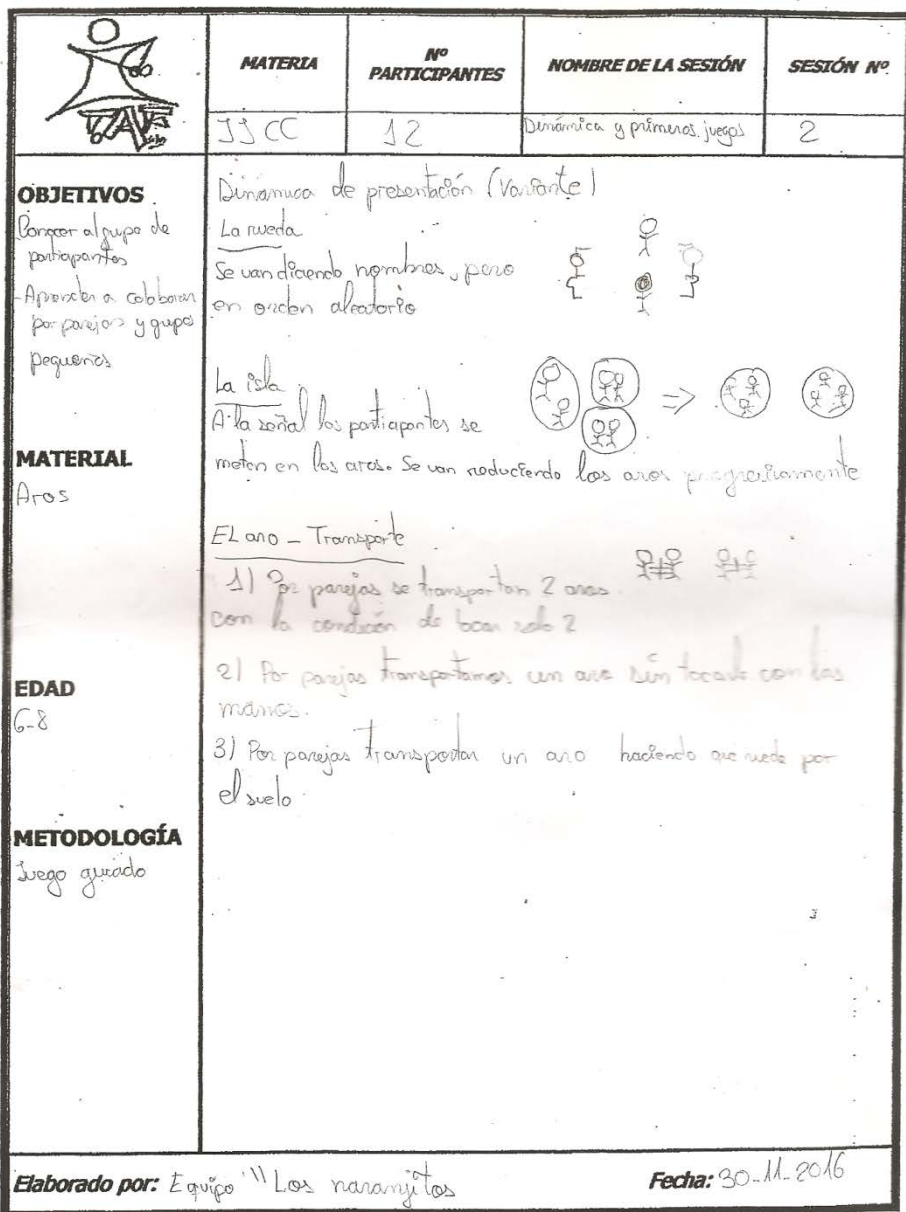 MATERIA
Nº PARTICIPANTES
NOMBRE DE LA SESIÓN
SESIÓN Nº
JJCC
12
Dinámica y primeros juegos
2
OBJETIVOS
Conocer al grupo de
participantes
- Aprender a colaborar
por parejas y grupos
pequeños
MATERIAL
Aros
EDAD
6-8
METODOLOGÍA
Juego guiado
Dinámica de presentación (Variante)
La rueda
Se van diciendo nombres, pero
en orden aleatorio
La isla
A la señal los participantes se
meten en los aros. Se van reduciendo los aros progresivamente
EL aro - Transporte
1) Por parejas se transportan 2 aros
con la condición de tocar solo 2
2) Por parejas transportamos un aro sin tocarlo con las
manos.
3) Por parejas transportar un aro haciendo que ruede por
el suelo
Elaborado por: Equipo "Los naranjitos
Fecha: 30-11-2016